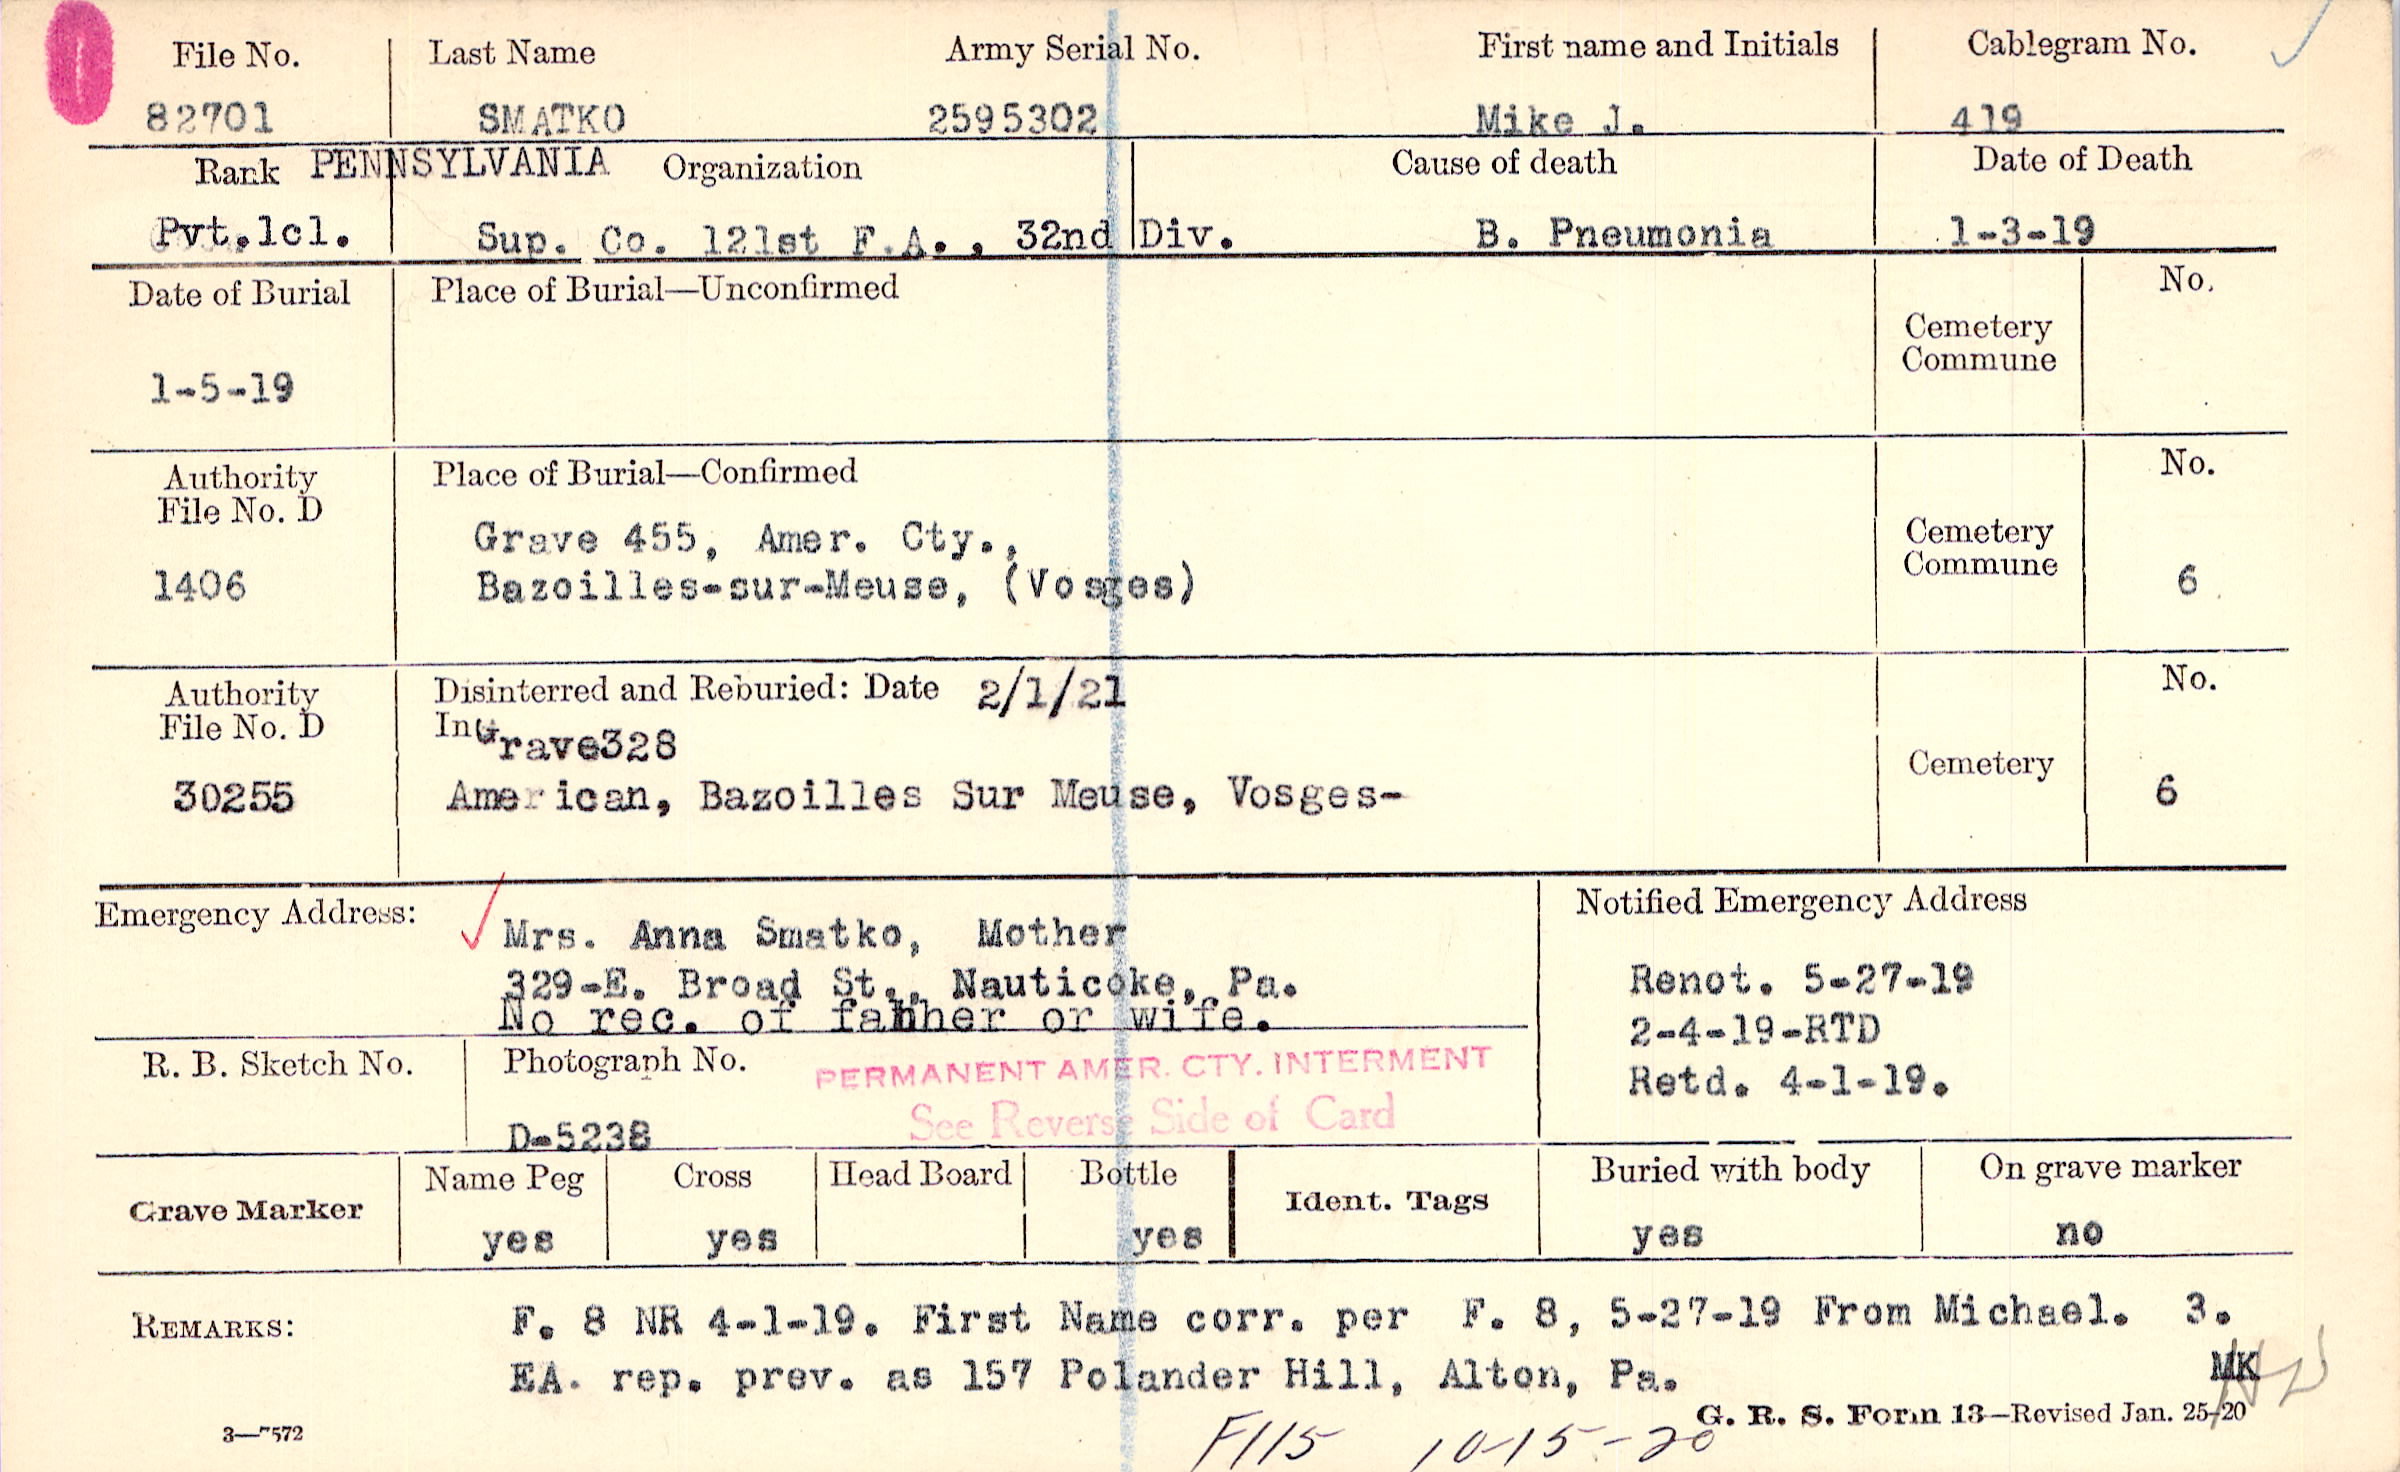 File No. Last Name Army Serial No. First name and Initials Cablegram No.
82701 SMATKO 2595302 Mike J. 419
Rank PENNSYLVANIA Organization Cause of death Date of Death
Pvt.1cl. Sup. Co. 121st F.A., 32nd Div. B. Pneumonia 1-3-19
Date of Burial Place of Burial—Unconfirmed No.
Cemetery
Commune
1-5-19
Authority Place of Burial—Confirmed No.
File No. D
Grave 455, Amer. Cty., Cemetery
Commune
1406 Bazoilles-sur-Meuse, (Vosges) 6
Authority Disinterred and Reburied: Date 2/1/21 No.
File No. D In Grave328
Cemetery
30255 American, Bazoilles Sur Meuse, Vosges- 6
Emergency Address: Notified Emergency Address
Mrs. Anna Smatko, Mother
329-E. Broad St., Nauticoke, Pa. Renot. 5-27-19
No rec. of father or wife. 2-4-19-RTD
R. B. Sketch No. Photograph No. PERMANENT AMER. CTY. INTERMENT Retd. 4-1-19.
See Reverse Side of Card
D-5238
Grave Marker Name Peg Cross Head Board Bottle Ident. Tags Buried with body On grave marker
yes yes yes yes no
REMARKS: F. 8 NR 4-1-19. First Name corr. per F. 8, 5-27-19 From Michael. 3.
EA. rep. prev. as 157 Polander Hill, Alton, Pa. MK
3—7572 G. R. S. Form 13—Revised Jan. 25-20
F115 10-15-20